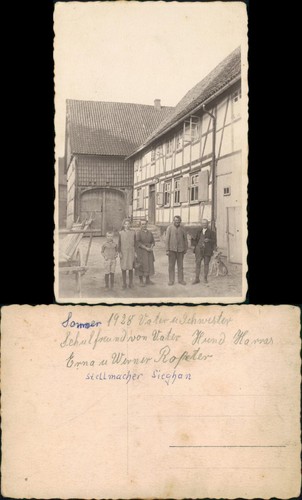 Sommer 1928 Vater u Schwester
Schulfreund von Vater Hund Harras
Erna u Werner Roßler
Stellmacher Sieghan